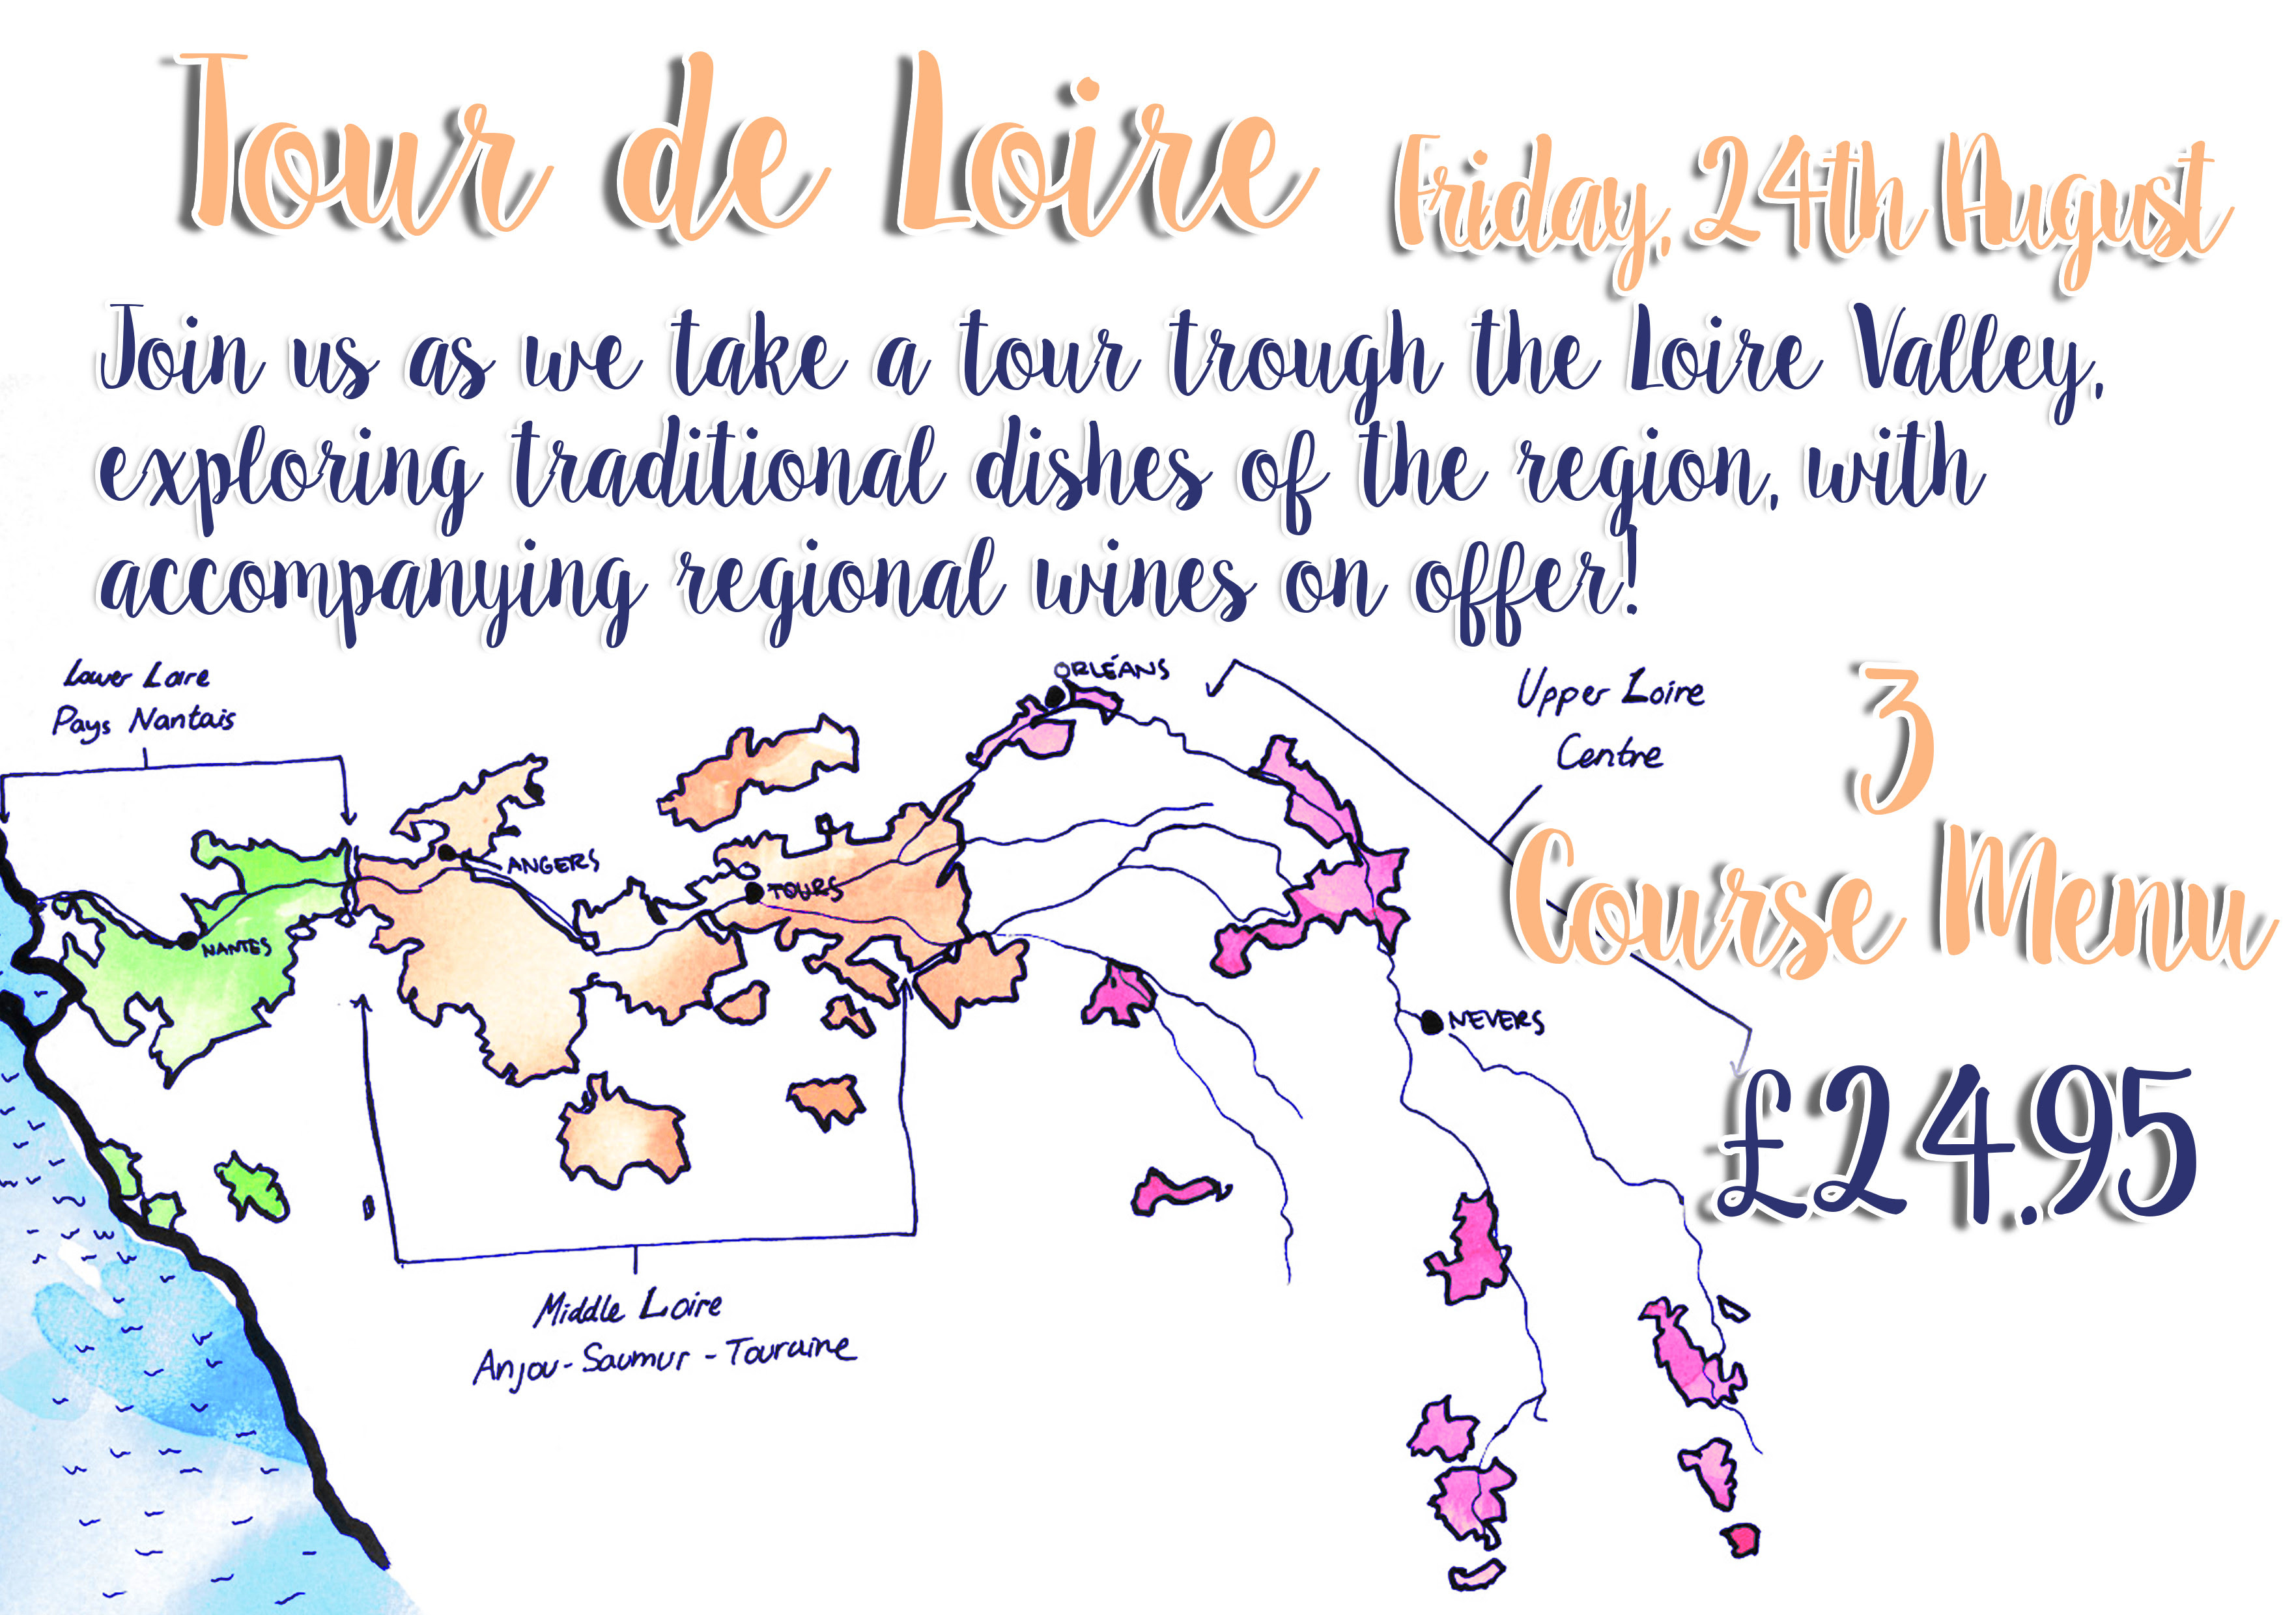 Tour de Loire
Friday, 24th August
Join us as we take a tour trough the Loire Valley,
exploring traditional dishes of the region, with
accompanying regional wines on offer!
Lower Loire
Pays Nantais
ORLÉANS
Upper Loire
Centre
3
Course Menu
£24.95
ANGERS
TOURS
NANTES
NEVERS
Middle Loire
Anjou-Saumur-Touraine